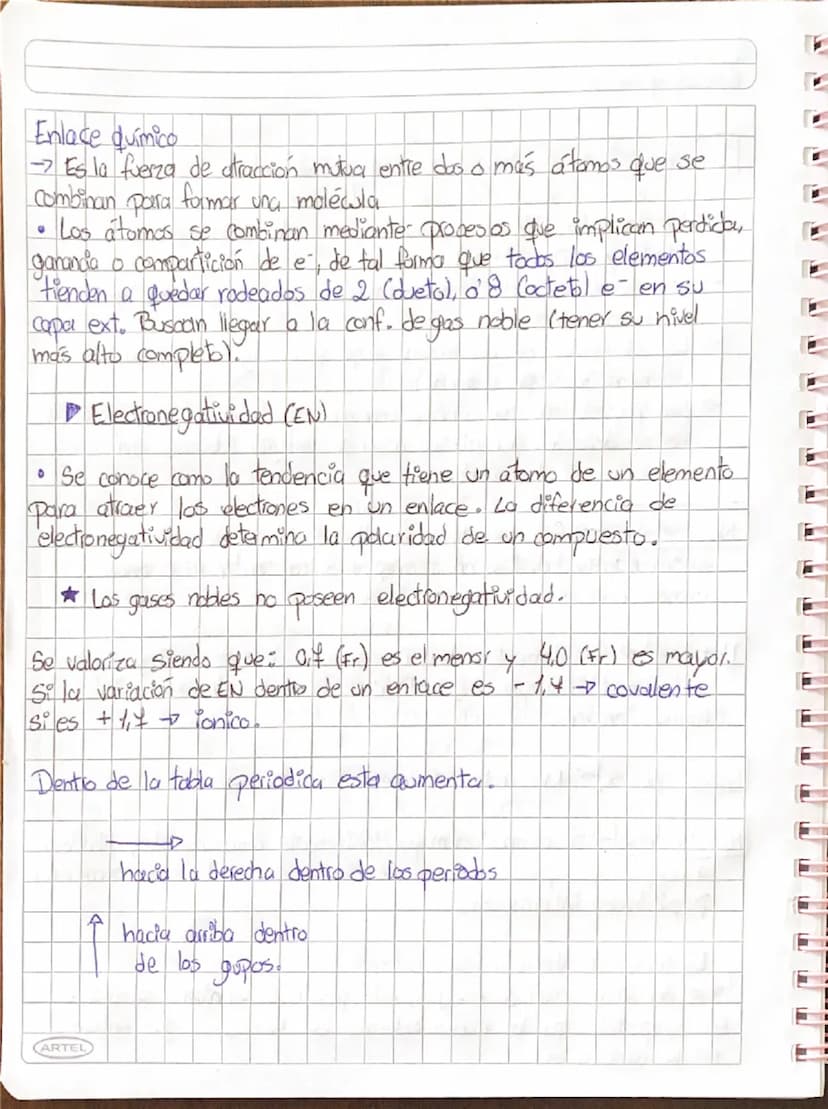 Enlace químico
→ Es la fuerza de atracción mutua entre dos o más átomos que se
combinan para formar una molécula
• Los átomos se combinan mediante procesos que implican perdida,
ganancia o compartición de e⁻, de tal forma que todos los elementos
tienden a quedar rodeados de 2 (dueto), ó 8 (octeto) e⁻ en su
capa ext. Buscan llegar a la conf. de gas noble (tener su nivel
más alto completo).
▷ Electronegatividad (EN)
• Se conoce como la tendencia que tiene un átomo de un elemento
para atraer los electrones en un enlace. La diferencia de
electronegatividad determina la polaridad de un compuesto.
★ Los gases nobles no poseen electronegatividad.
Se valoriza siendo que: 0,7 (Fr) es el menor y 4,0 (Fr) es mayor.
Si la variación de EN dentro de un enlace es - 1,7 → covalente
si es + 1,7 → iónico.
Dentro de la tabla periodica esta aumenta.
→
hacia la derecha dentro de los periodos
↑ hacia arriba dentro
de los gupos.
ARTEL